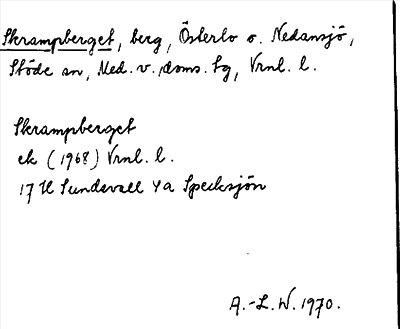 Skrampberget, berg, Österlo o. Nedansjö,
Stöde sn, Med. v. doms. tg, Vrnl. l.
Skrampberget
ek (1968) Vrnl. l.
17 H Sundsvall 4a Specksjön
A.-L. W. 1970.